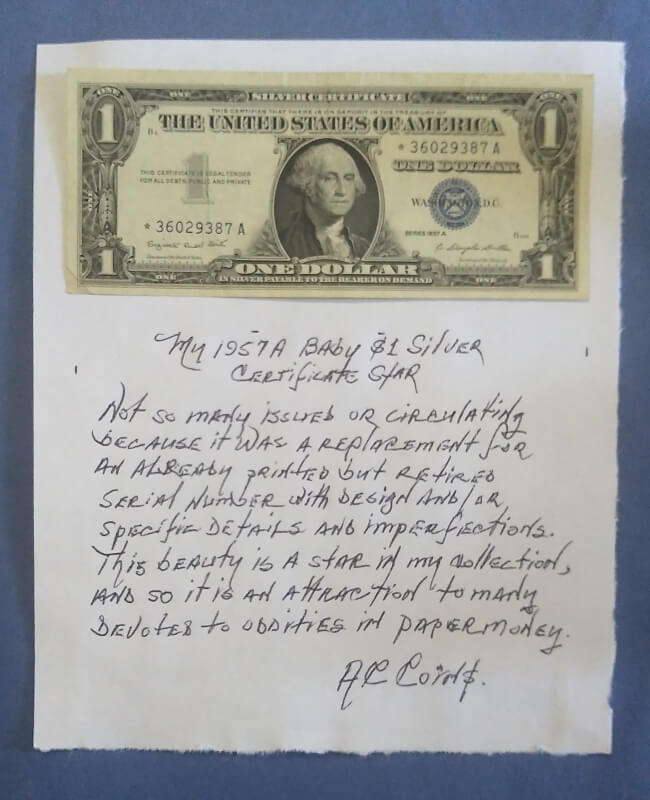 ONE ONE
SILVER CERTIFICATE
1 1
THIS CERTIFIES THAT THERE IS ON DEPOSIT IN THE TREASURY OF
THE UNITED STATES OF AMERICA
* 36029387 A
ONE DOLLAR
1
THIS CERTIFICATE IS LEGAL TENDER
FOR ALL DEBTS, PUBLIC AND PRIVATE
WASHINGTON, D.C.
* 36029387 A
SERIES 1957 A
1 1
ONE DOLLAR
ONE ONE
IN SILVER PAYABLE TO THE BEARER ON DEMAND
My 1957A BABY $1 SILVER
CERTIFICATE STAR
Not so many issued or circulating
because it was a replacement for
an already printed but retired
serial number with design and/or
specific details and imperfections.
This beauty is a star in my collection,
and so it is an attraction to many
devoted to oddities in paper money.
AC Coin$.